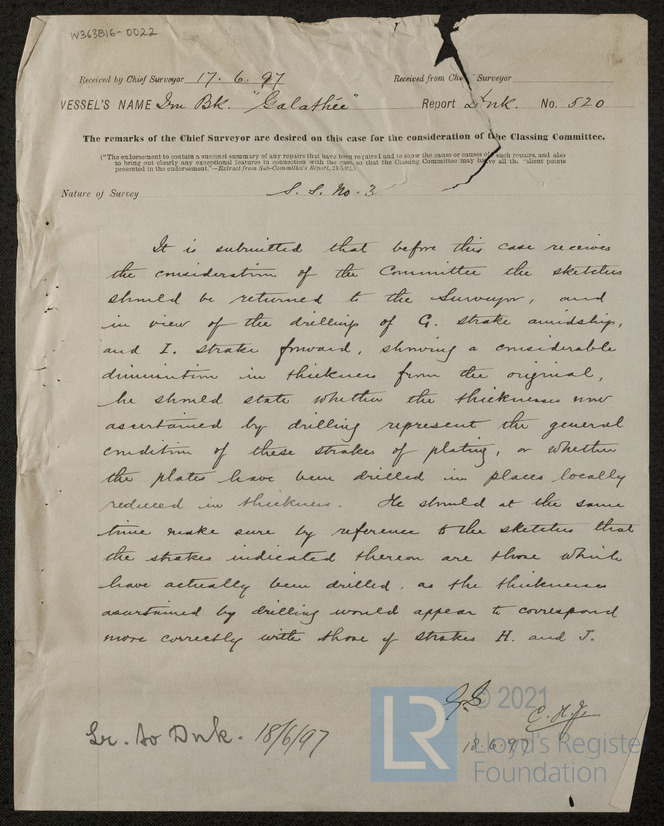 W363816-0022
Received by Chief Surveyor 17.6.97 Received from Chief Surveyor
VESSEL'S NAME Iron Bk. "Galathée" Report Dnk. No. 520
The remarks of the Chief Surveyor are desired on this case for the consideration of the Classing Committee.
("The endorsement to contain a succinct summary of any repairs that have been required and to show the cause or causes of such repairs, and also
to bring out clearly any exceptional features in connection with the case, so that the Classing Committee may have all the salient points
presented in the endorsement."—Extract from Sub-Committee's Report,
Nature of Survey S. S. No. 3
It is submitted that before this case receives
the consideration of the Committee the sketches
should be returned to the Surveyor, and
in view of the drillings of G. strake amidships,
and I. strake forward, showing a considerable
diminution in thickness from the original,
he should state whether the thicknesses now
ascertained by drilling represent the general
condition of these strakes of plating, or whether
the plates have been drilled in places locally
reduced in thickness. He should at the same
time make sure by reference to the sketches that
the strakes indicated thereon are those which
have actually been drilled, as the thicknesses
ascertained by drilling would appear to correspond
more correctly with those of strakes H. and J.
Lr. to Dnk. 18/6/97
18.6.97
LR © 2021
Lloyd's Register
Foundation